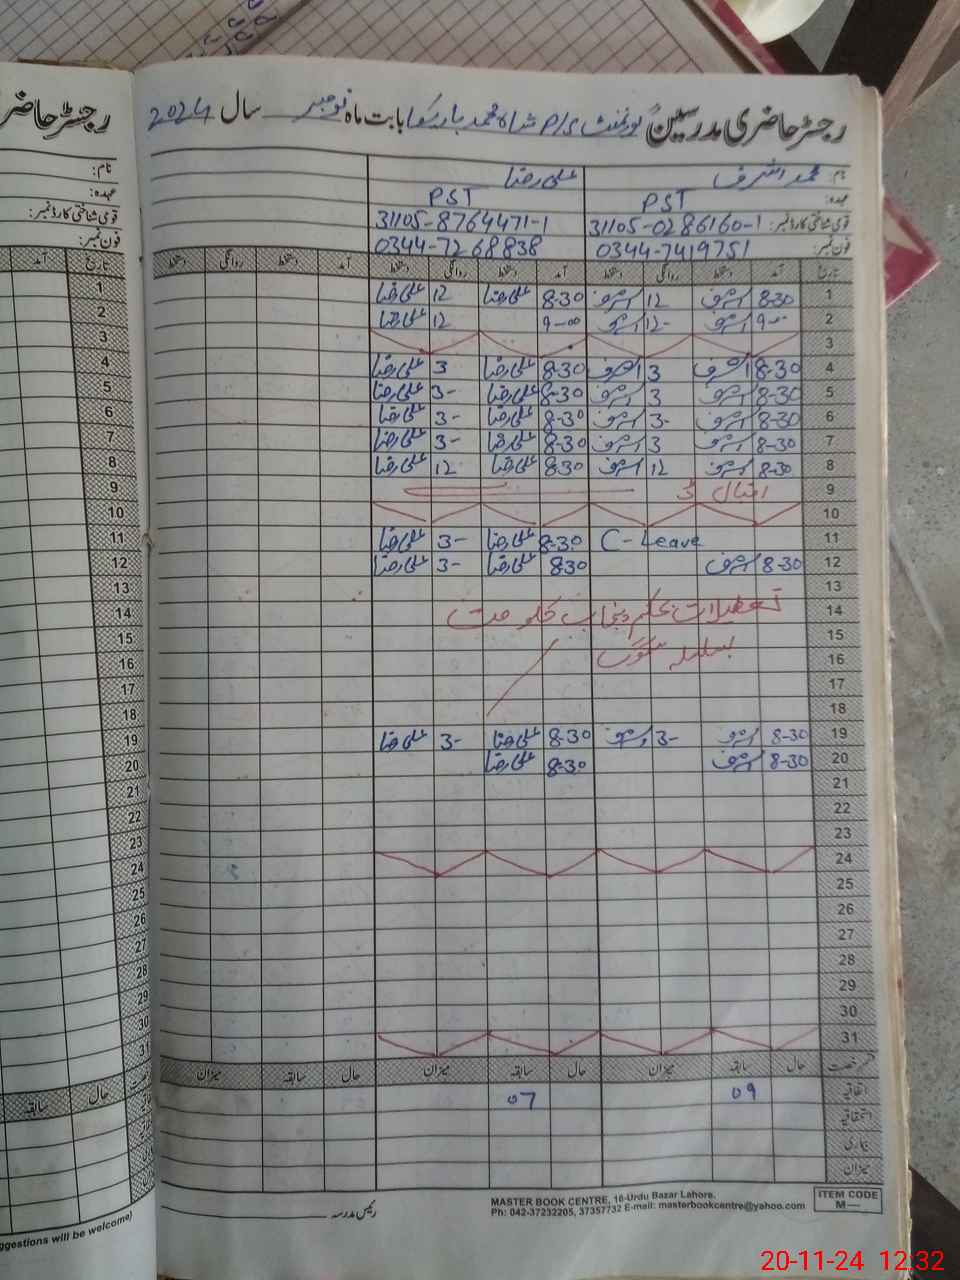 رجسٹر حاضری مدرسین گورنمنٹ P/S شاہ محمد بابت ماہ نومبر سال 2024
نام: محمد اشرف علی رضا
عہدہ: PST PST
قومی شناختی کارڈ نمبر: 31105-0286160-1 31105-8764471-1
فون نمبر: 0344-7419751 0344-7268838
تاریخ آمد دستخط روانگی دستخط آمد دستخط روانگی دستخط آمد دستخط روانگی دستخط
1 8-30 اشرف 12 اشرف 8-30 علی رضا 12 علی رضا
2 9-00 اشرف 12- اشرف 9-00 12 علی رضا
3
4 8-30 اشرف 3 اشرف 8-30 علی رضا 3 علی رضا
5 8-30 اشرف 3 اشرف 8-30 علی رضا 3- علی رضا
6 8-30 اشرف 3- اشرف 8-30 علی رضا 3- علی رضا
7 8-30 اشرف 3 اشرف 8-30 علی رضا 3- علی رضا
8 8-30 اشرف 12 اشرف 8-30 علی رضا 12 علی رضا
9 اقبال ڈے
10
11 C-Leave 8-30 علی رضا 3- علی رضا
12 8-30 اشرف 830 علی رضا 3- علی رضا
13
14 تعطیلات بحکم پنجاب حکومت
15
16 بسلسلہ سموگ
17
18
19 8-30 اشرف 3- اشرف 8-30 علی رضا 3- علی رضا
20 8-30 اشرف 8-30 علی رضا
21
22
23
24
25
26
27
28
29
30
31
قسم رخصت حال سابقہ میزان حال سابقہ میزان حال سابقہ میزان
اتفاقیہ 09 07
استحقاقیہ
بیماری
میزان
رئیس مدرسہ
MASTER BOOK CENTRE, 16-Urdu Bazar Lahore.
Ph: 042-37232205, 37357732 E-mail: masterbookcentre@yahoo.com
ITEM CODE
M—
رجسٹر حاضر
نام:
عہدہ:
قومی شناختی کارڈ نمبر:
فون نمبر:
تاریخ آمد
1
2
3
4
5
6
7
8
9
10
11
12
13
14
15
16
17
18
19
20
21
22
23
24
25
26
27
28
29
30
31
حال سابقہ
ggestions will be welcome)
20-11-24 12:32